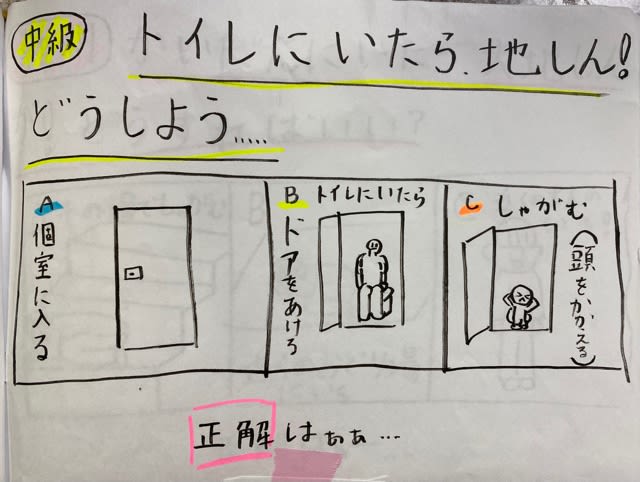 中級
トイレにいたら、地しん!
どうしよう.....
A
個室に入る
B トイレにいたら
ドアをあけろ
C しゃがむ
(頭をかかえる)
正解はぁぁ...